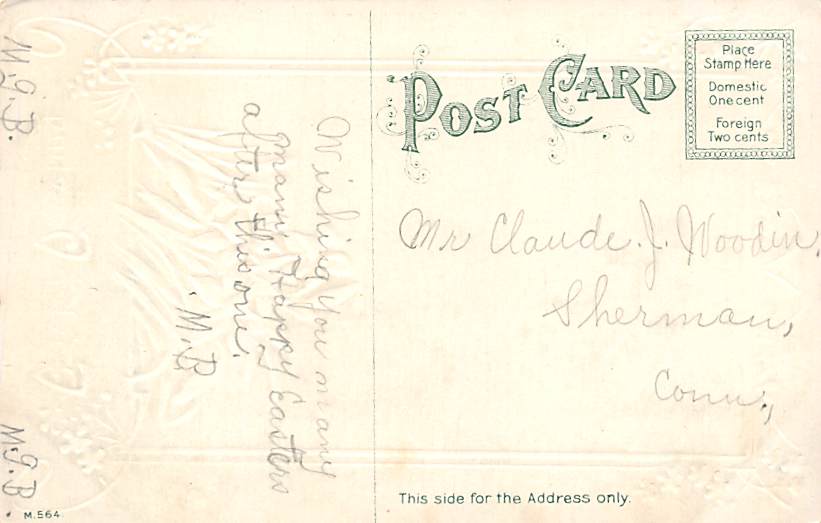 M.G.B.
Wishing you many
many Happy Easters
after this one.
M.B
M.G.B
M.564.
POST CARD
Place
Stamp Here
Domestic
One cent
Foreign
Two cents
Mr Claude. J. Woodin,
Sherman,
Conn.,
This side for the Address only.